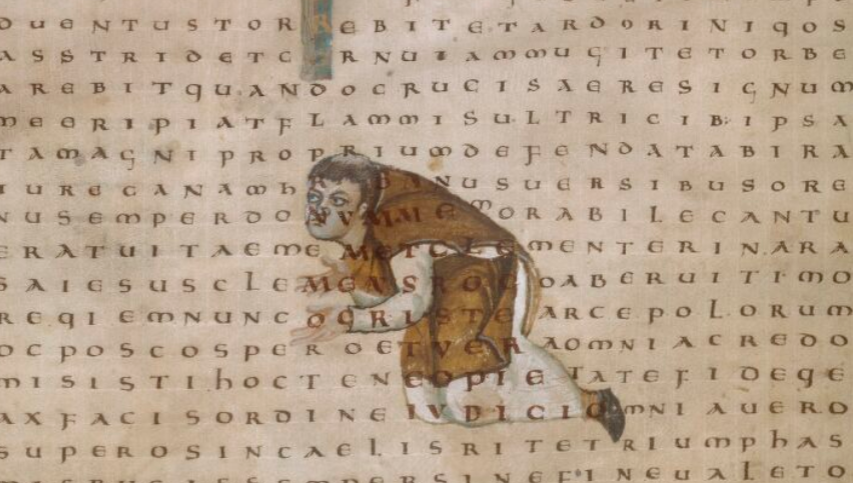 DUENTUSTORREBITETARDORINIQOS
ASSTRIDETCERNUIAMMUGITETORBE
AREBITQUANDOCRUCISAERESIGNUM
MEERIPIATFLAMMISULTRICIBIPSA
TAMAGNIPROPRIUMDEFENDATABIRA
IURECANAMHRABANUSUERSIBUSORE
NUSEMPERDONVMMEMORABILECANTU
ERATUITAEMEMETCLEMENTERINARA
SAIESUSCLEMENSROGOABERUITIMO
REGIEMNUNCOCRISTEARCEPOLORUM
OCPOSCOSPEROETVERAOMNIACREDO
MISISTIHOCTENEOPIETATEFIDEQE
AXFACISORDINEIVDICIOMNIAUERO
SUPEROSINCAELISRITETRIUMPHAS
SINEFINEUALETO